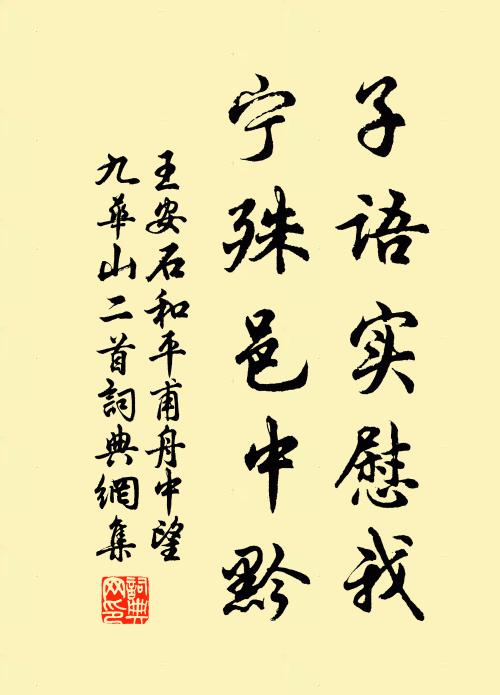 子语实慰我
宁殊邑中黔
王安石和平甫舟中望
九华山二首词典网集
詞典
网印